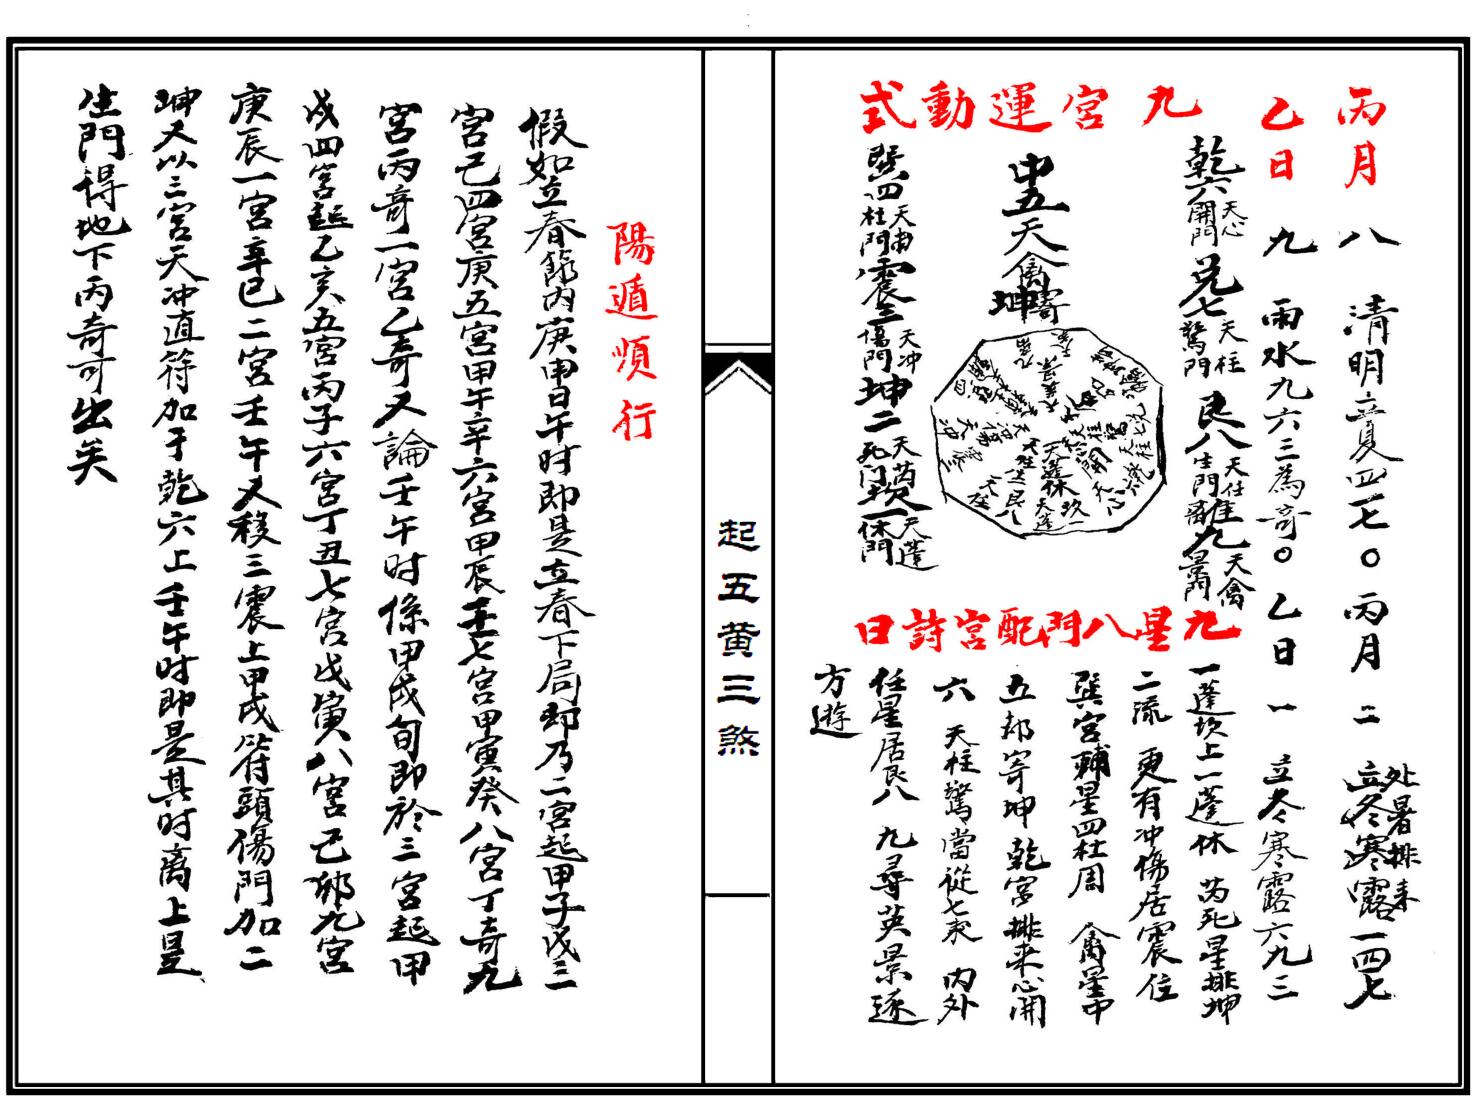 丙月　八　清明立夏四一七〇丙月　二　处暑排来立冬寒露一四七
乙日　九　雨水九六三為奇〇乙日　一　立冬寒露六九三
九宮運動式
乾六天心開門兌七天柱驚門艮八天任生門離九天禽景門
中五天禽寄坤
巽四天輔杜門震三天冲傷門坤二天芮死门坎一天蓬休門
九星八門配宮詩曰
一蓬坎上一蓬休　芮死星排坤
二流　更有冲傷居震住
巽宮輔星四杜周　禽星中
五却寄坤乾宮排来心開
六　天柱驚當從七求　内外
任星居艮八　九尋英景逐
方遊
起五黄三煞
陽遁順行
假如立春節内庚申日午时即是立春下局却乃二宮起甲子戊三
宮己四宮庚五宮甲午辛六宮甲辰壬七宮甲寅癸八宮丁奇九
宮丙奇一宮乙奇又論壬午时係甲戌旬即於三宮起甲
戌四宮起乙亥五宮丙子六宮丁丑七宮戊寅八宮己卯九宮
庚辰一宮辛巳二宮壬午又移三震上甲戌符頭傷門加二
坤又以三宮天冲直符加于乾六上壬午时即是其时离上是
生門得地下丙奇可出矣